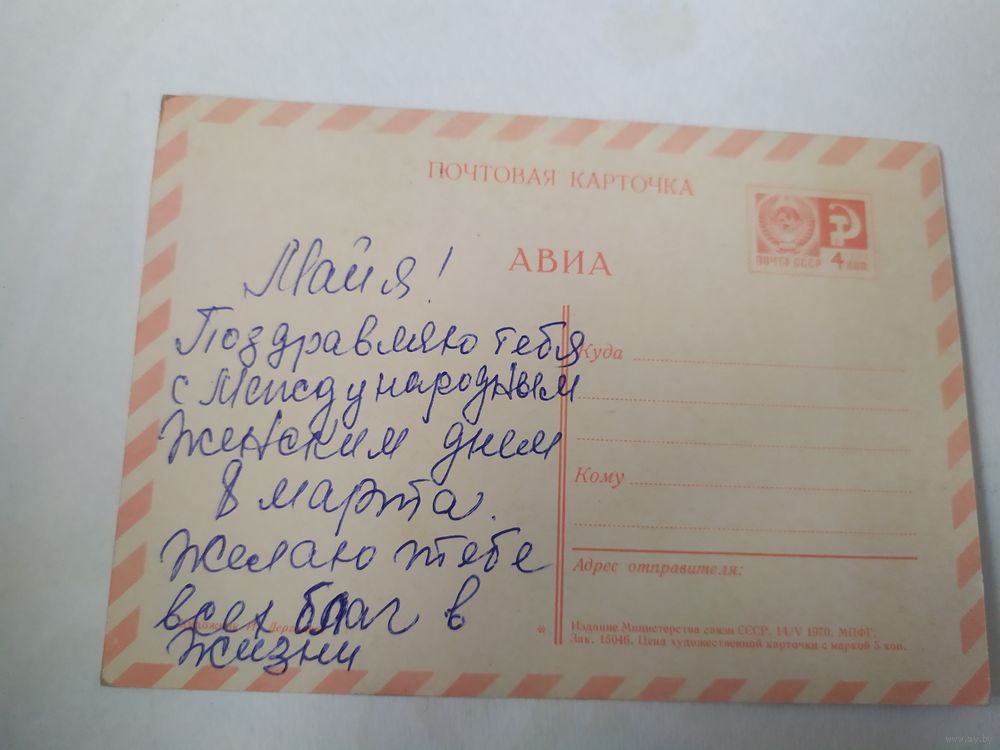 ПОЧТОВАЯ КАРТОЧКА
АВИА
ПОЧТА СССР 4 коп
Майя!
Поздравляю тебя
с Международным
Женским днем
8 марта.
Желаю тебе
всех благ в
жизни
Куда
Кому
Адрес отправителя:
Художник
* Издание Министерства связи СССР. 14/V 1970. МПФГ.
Зак. 15046. Цена художественной карточки с маркой 5 коп.
www.ay.by